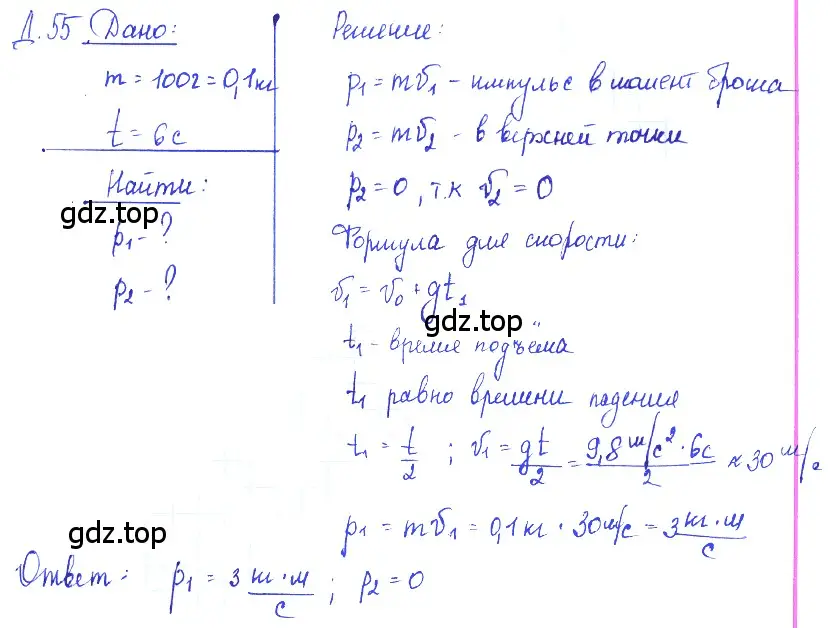 Д.55 Дано:
m = 100г = 0,1кг
t = 6с
Найти:
gdz.top
p₁ - ?
p₂ - ?
Решение:
p₁ = mv₁ - импульс в момент броша
p₂ = mv₂ - в верхней точки
p₂ = 0, т.к v₂ = 0
Формула для скорости:
v₁ = v₀ + gt₁
gdz.top
t₁ - время подъёма
t₁ равно времени падения
t₁ = t/2 ; v₁ = gt/2 = 9,8 м/с² · 6с / 2 ≈ 30 м/с
gdz.top
p₁ = mv₁ = 0,1 кг · 30 м/с = 3 кг·м/с
Ответ: p₁ = 3 кг·м/с ; p₂ = 0